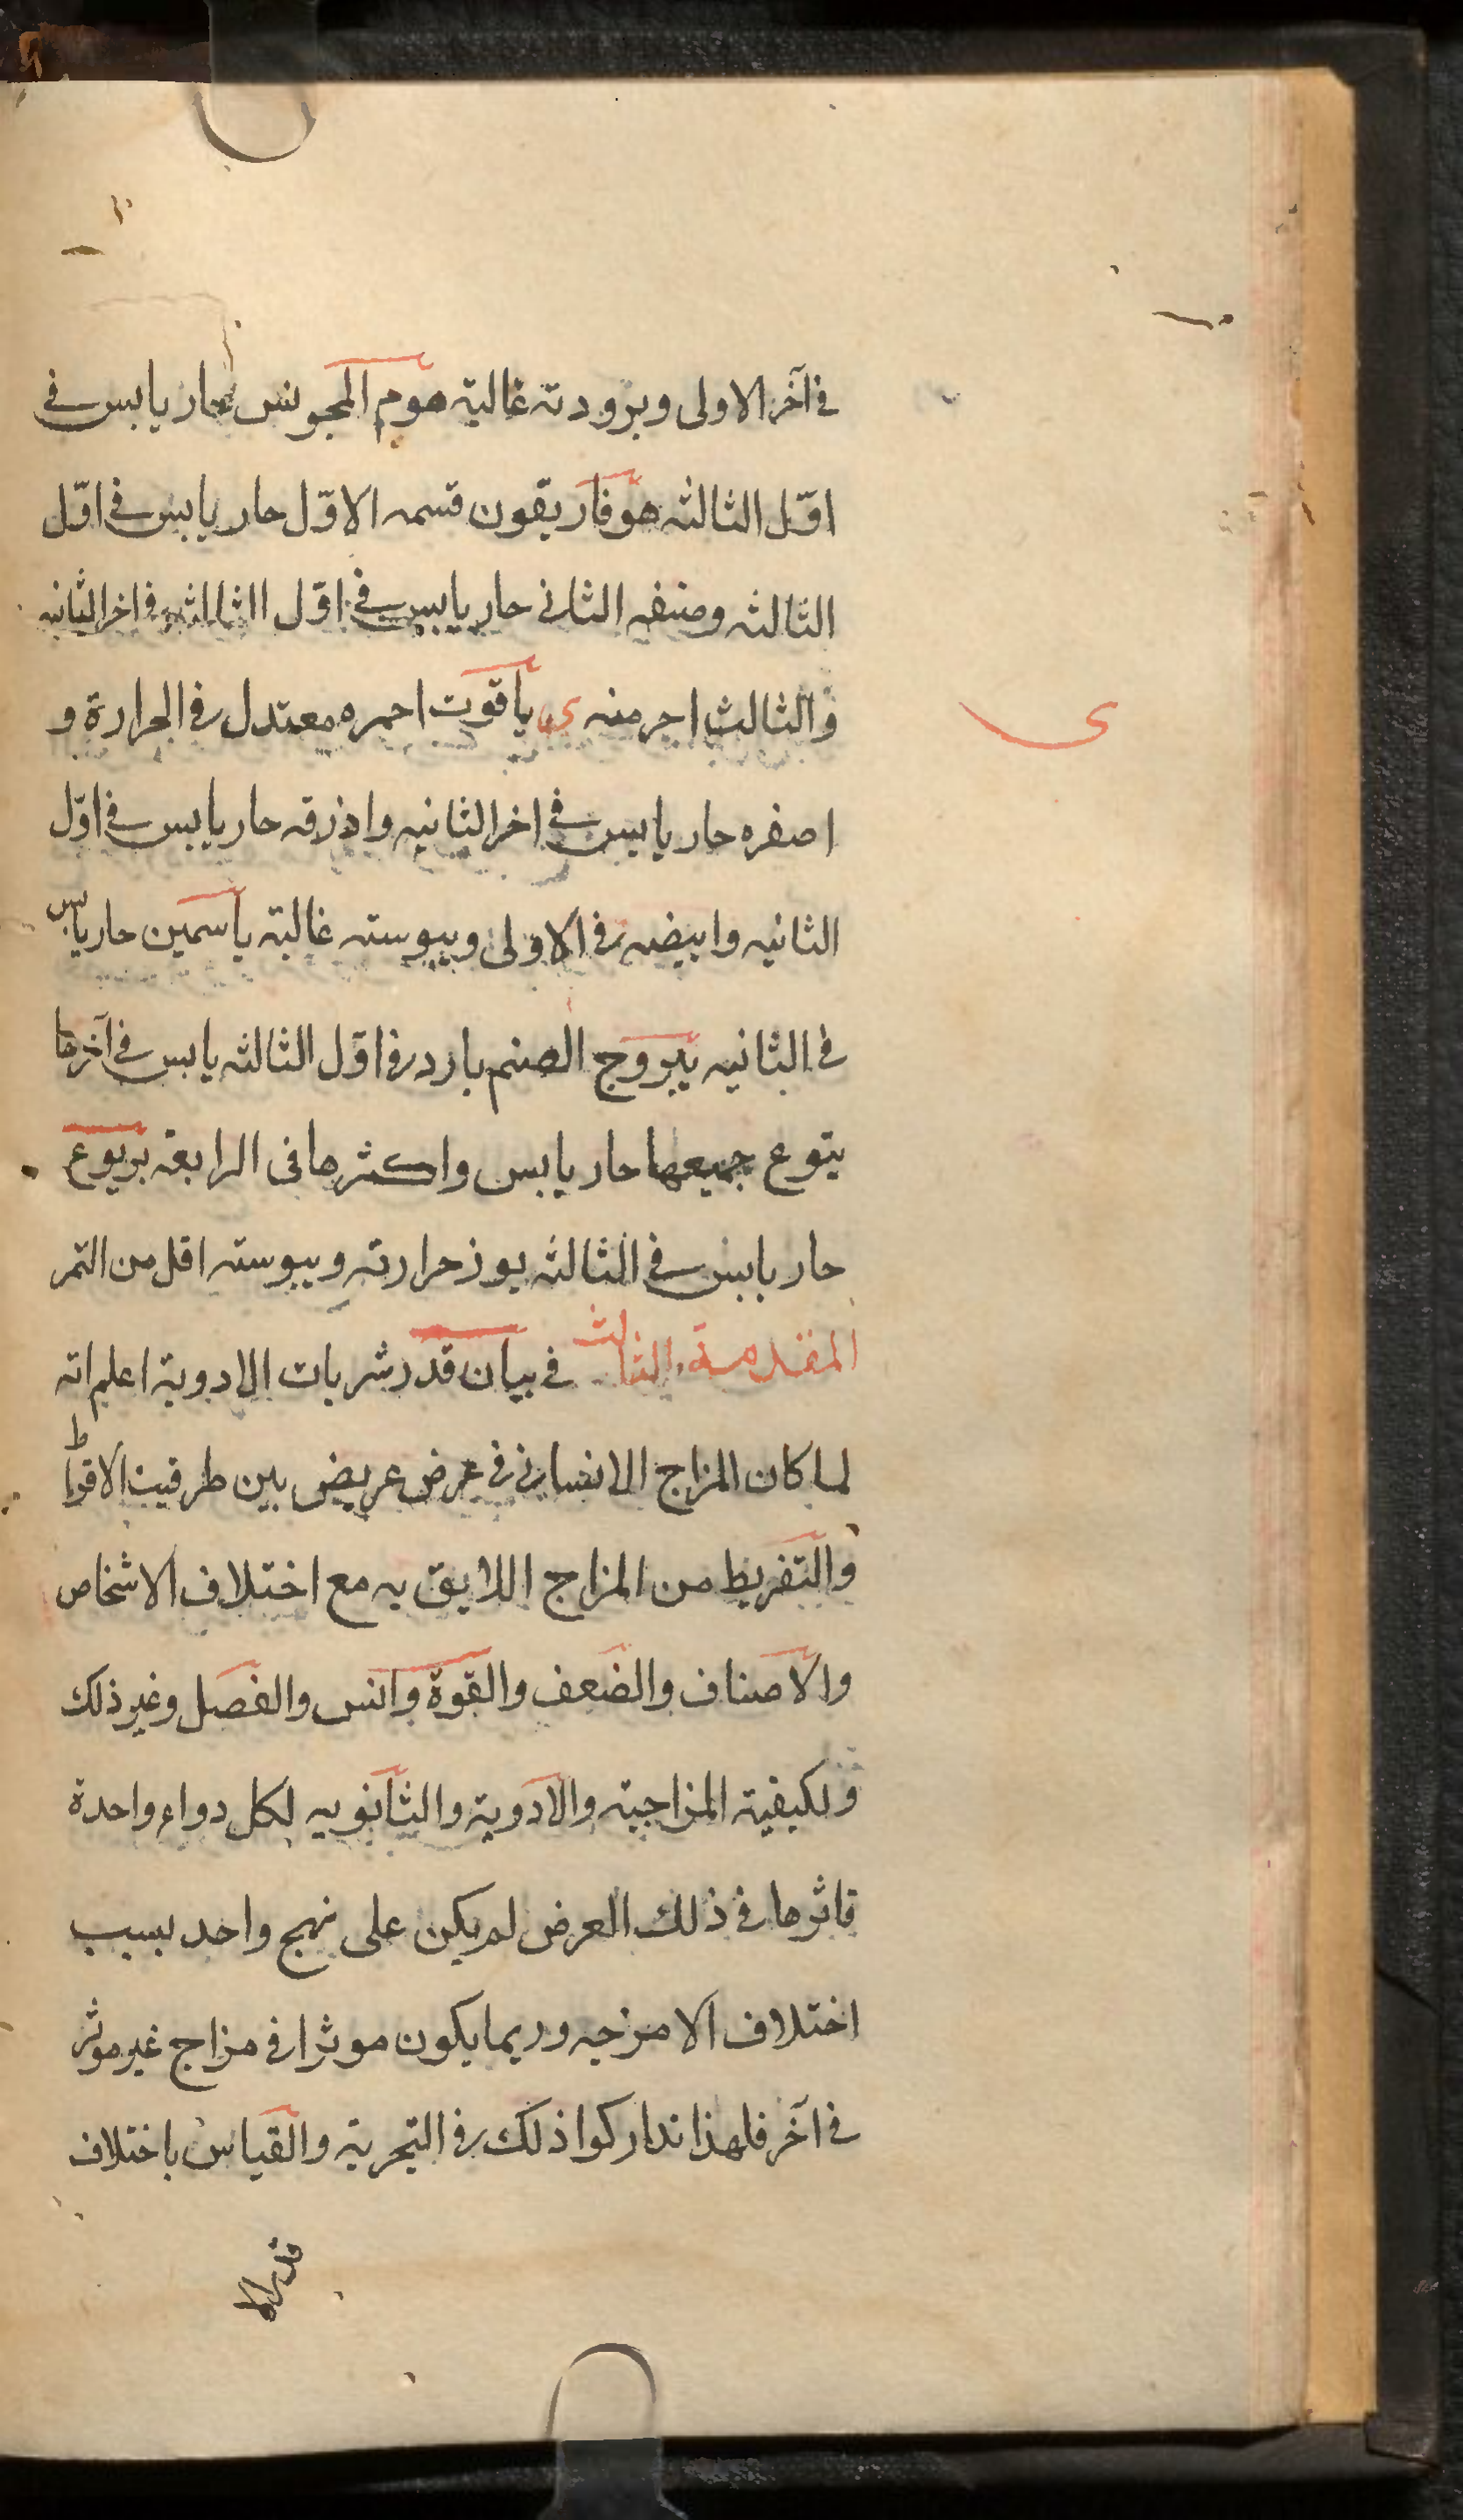 في آخر الاولى وبرودته غالبة هوم المجوس حار يابس في
اوّل الثالثه هوفاريقون قسمه الاوّل حار يابس في اوّل
الثالثه وصنفه الثانى حار يابس في اوّل الثالثه وفى اخر الثانيه
والثالث احر منه ى ياقوت احمره معتدل فى الحرارة و
اصفره حار يابس في اخر الثانيه واذرقه حار يابس في اوّل
الثانيه وابيضه فى الاولى ويبوسته غالبة ياسمين حار يابس
فى الثانيه يبروج الصنم بارد فى اوّل الثالثه يابس في آخرها
يتوع جميعها حار يابس واكثرها فى الرابعة يربوع
حار يابس في الثالثه يوز حرارته ويبوسته اقل من التمر
المقدمة الثالث في بيان قدر شربات الادوية اعلم انه
لما كان المزاج الانسانى فى عرض عريض بين طرفيت الاقواط
والتفريط من المزاج اللايق به مع اختلاف الاشخاص
والاصناف والضعف والقوة وانس والفصل وغير ذلك
ولكيفية المزاجية والادوية والثانويه لكل دواء واحدة
تاثرها فى ذلك العرض لم يكن على نهج واحد بسبب
اختلاف الامزجه وربما يكون موثرا فى مزاج غير موثر
فى آخر فلهذا تداركوا ذلك فى التجربة والقياس باختلاف
ى